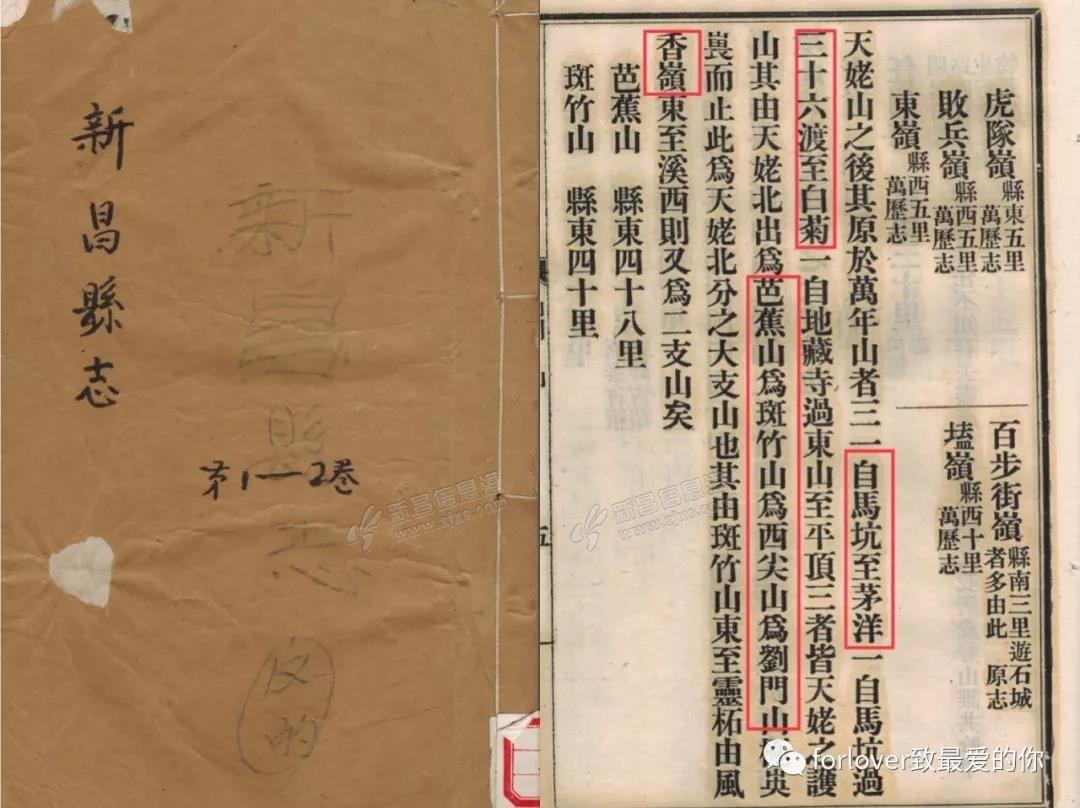 新昌縣志
新昌縣志
第1—2卷
虎隊嶺 縣東五里
萬歷志
百步街嶺 縣南三里遊石城
者多由此 原志
敗兵嶺 縣西五里
萬歷志
嶺 縣西十里
萬歷志
東嶺 縣西五里
萬歷志
天姥山之後其原於萬年山者三一自馬坑至茅洋一自馬坑過
三十六渡至白菊一自地藏寺過東山至平頂三者皆天姥之護
山其由天姥北出爲芭蕉山爲斑竹山爲西尖山爲劉門山英
而止此爲天姥北分之大支山也其由斑竹山東至靈柘由風
香嶺東至溪西則又爲二支山矣
芭蕉山 縣東四十八里
斑竹山 縣東四十里
五
新昌信息港
www.zjxc.com
新昌信息港
www.zjxc.com
forlover致最爱的你